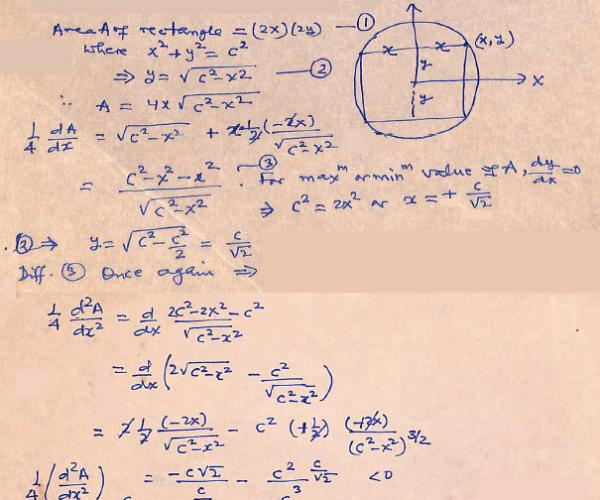 Area A of rectangle = (2x)(2y) — ①
where x² + y² = c²
⇒ y = √(c² - x²) — ②
∴ A = 4x √(c² - x²)
1/4 dA/dx = √(c² - x²) + x·1/2 (-2x)/√(c² - x²)
= (c² - x² - x²)/√(c² - x²) . — ③ For maxᵐ or minᵐ value of A, dy/dx = 0
⇒ c² = 2x² or x = + c/√2
② ⇒ y = √(c² - c²/2) = c/√2
Diff. ③ Once again ⇒
1/4 d²A/dx² = d/dx (2c² - 2x² - c²)/√(c² - x²)
= d/dx (2√(c² - x²) - c²/√(c² - x²))
= 2 1/2 (-2x)/√(c² - x²) - c² (+1/2) (+2x)/(c² - x²)^3/2
1/4 (d²A/dx²) = -c√2/c - c²/c³ c/√2 < 0
x
x
(x, y)
y
X
y